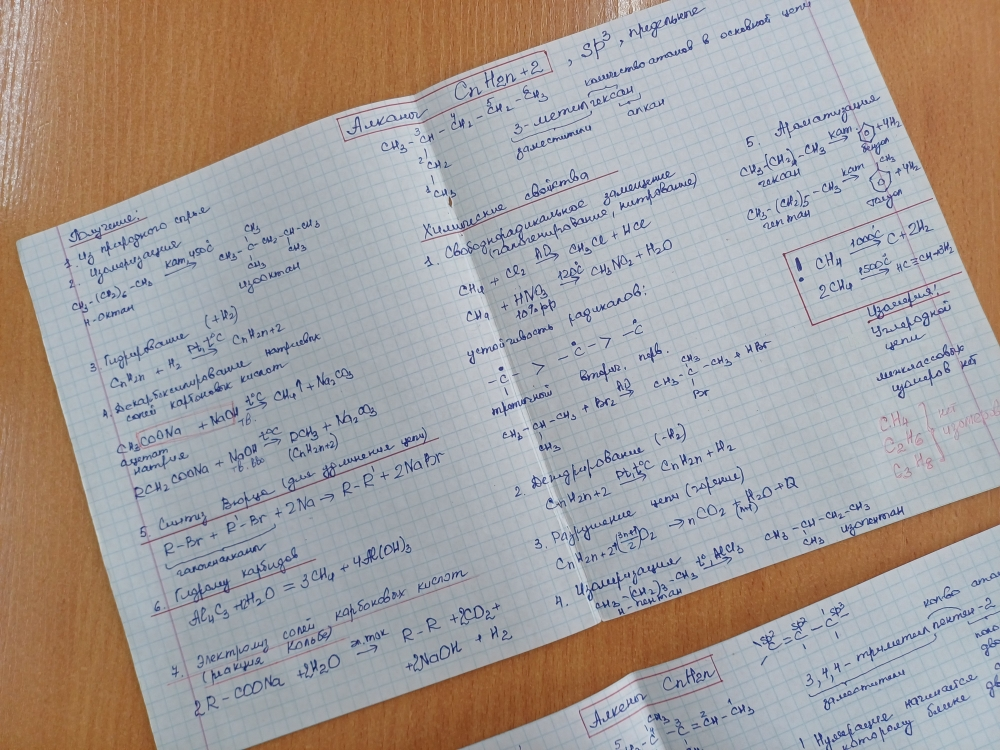 Алканы CnH2n+2, sp³, предельные
CH₃-CH-CH₂-CH₂-CH₃
CH₂
CH₃
количество атомов в основной цепи
3-метилгексан
заместители алкан
Получение:
1. Из природного сырья
2. Изомеризация
CH₃-(CH₂)₆-CH₃ кат 450°C → CH₃-C-CH₂-CH-CH₃
CH₃
CH₃ CH₃
н-октан изооктан
3. Гидрирование (+H₂)
CnH2n + H₂ Pt, t°C → CnH2n+2
4. Декарбоксилирование натриевых
солей карбоновых кислот
CH₃COONa + NaOH t°C → CH₄↑ + Na₂CO₃
тв.
ацетат
натрия
RCH₂COONa + NaOH t°C → RCH₃ + Na₂CO₃
(CnH2n+2)
5. Синтез Вюрца (для удлинения цепи)
R-Br + R'-Br + 2Na → R-R' + 2NaBr
галогеналканы
6. Гидролиз карбидов
Al₄C₃ + 12H₂O = 3CH₄ + 4Al(OH)₃
7. Электролиз солей карбоновых кислот
(реакция Кольбе)
2R-COONa + 2H₂O эл. ток → R-R + 2CO₂ +
+2NaOH + H₂
Химические свойства
1. Свободнорадикальное замещение
(галогенирование, нитрование)
CH₄ + Cl₂ hν → CH₃Cl + HCl
CH₄ + HNO₃ 120°C → CH₃NO₂ + H₂O
10% рр
устойчивость радикалов:
-C- > -C- > -C
третичной вторич. перв.
CH₃-CH-CH₃ + Br₂ hν → CH₃-C-CH₃ + HBr
CH₃
CH₃
Br
2. Дегидрирование (-H₂)
CnH2n+2 Pt, t°C → CnH2n + H₂
3. Разрушение цепи (горение)
CnH2n+2 + (3n+1/2)O₂ → nCO₂ + (n+1)H₂O + Q
4. Изомеризация
CH₃-(CH₂)₃-CH₃ t° AlCl₃ → CH₃-CH-CH₂-CH₃
CH₃
н-пентан изопентан
5. Ароматизация
CH₃-(CH₂)₄-CH₃ кат → +4H₂
гексан бензол
CH₃-(CH₂)₅-CH₃ кат → +4H₂
CH₃
гептан толуол
! CH₄ 1000°C → C + 2H₂
2CH₄ 1500°C → HC≡CH+3H₂
Изомерия!
Углеродной
цепи
межклассовых
изомеров нет
CH₄
C₂H₆
C₃H₈
нет
изомеров
Алкены CnH2n
sp² sp² sp³
C=C-C
кол-во атом
3,4,4-триметилпентен-2
заместители
CH₃
C=CH-CH₃
Нумерация начинается
которому ближе дв